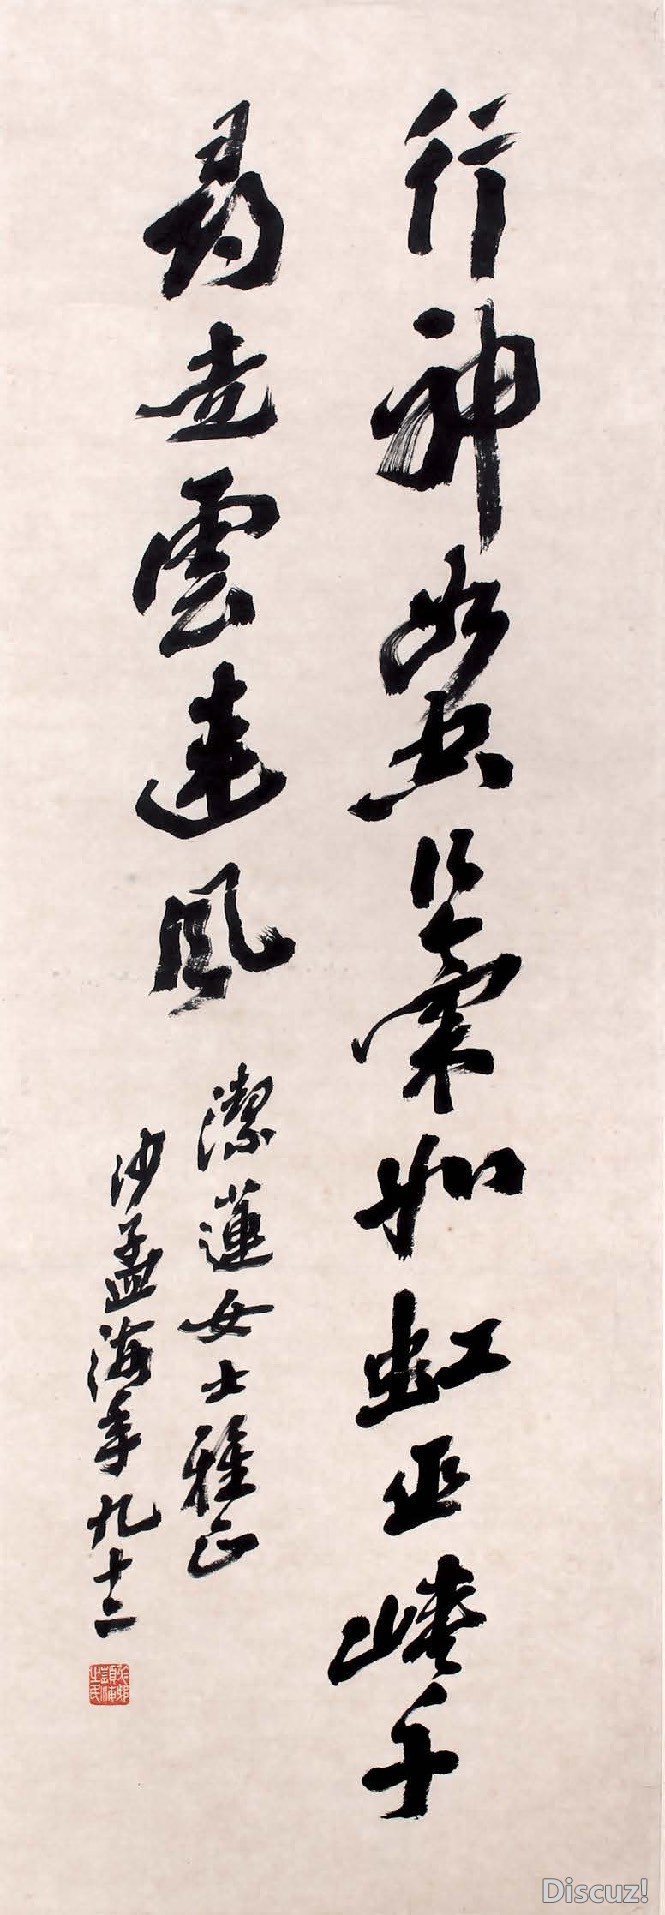 行神如空行氣如虹巫峽千
尋走雲連風
潔蓮女士雅正
沙孟海年九十二
Discuz!